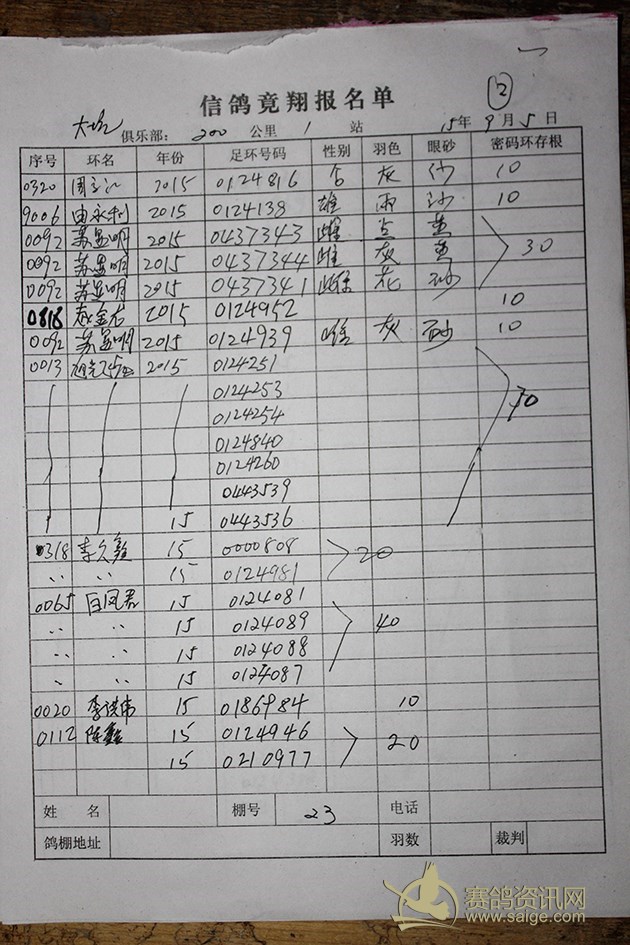 一
12
信鸽竟翔报名单
俱乐部： 200 公里 1 站 15年 9月 5日
序号 环名 年份 足环号码 性别 羽色 眼砂 密码环存根
0320 2015 0124816 灰 沙 10
9006 由永利 2015 0124138 雄 雨 沙 10
0092 苏显明 2015 0437343 雌 黄
0092 苏显明 2015 0437344 雌 灰 黄 30
0092 苏显明 2015 0437341 雌 花 砂
0818 2015 0124952 10
0092 苏显明 2015 0124939 雌 灰 砂 10
0013 2015 0124251
0124253
0124254 70
0124840
0124260
0443539
15 0443536
0318 李久 15 0000808 20
15 0124981
0065 白凤君 15 0124081
15 0124089 40
15 0124088
15 0124087
0020 李洪伟 15 0186984 10
0112 陈鑫 15 0124946 20
15 0210977
姓 名 棚号 23 电话
鸽棚地址 羽数 裁判
赛鸽资讯网
www.saige.com